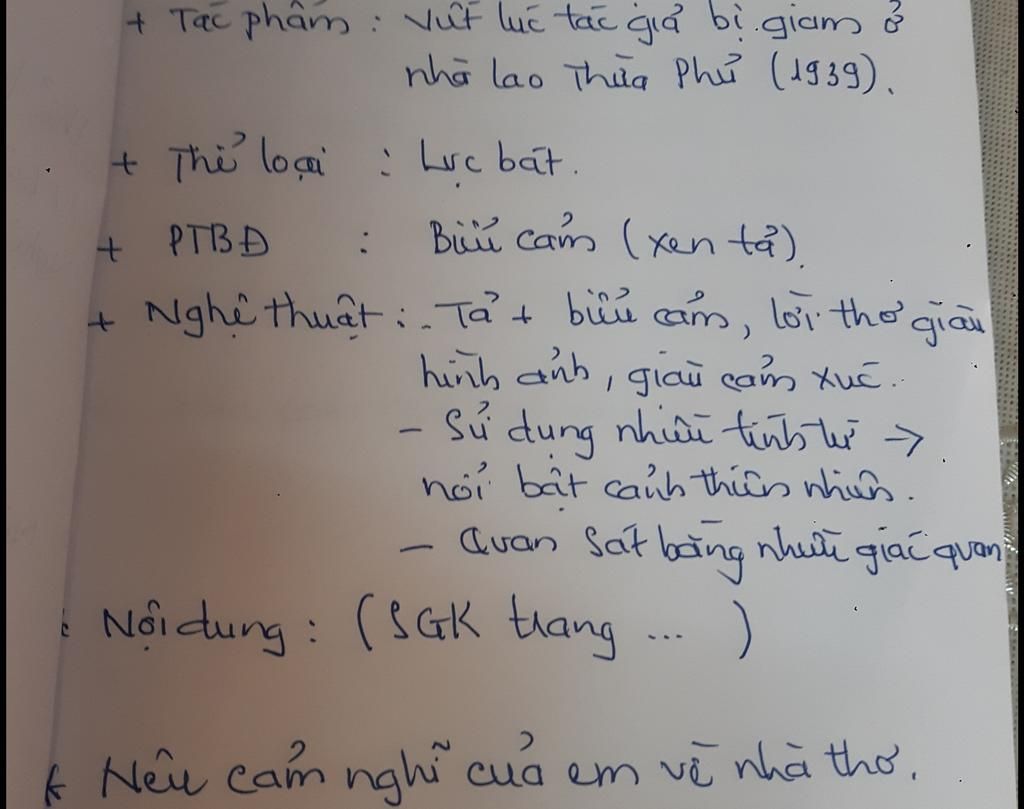 + Tác phẩm : Viết lúc tác giả bị giam ở
nhà lao Thừa Phủ (1939).
+ Thể loại : Lục bát.
+ PTBĐ : Biểu cảm (xen tả).
+ Nghệ thuật : - Tả + biểu cảm, lời thơ giàu
hình ảnh, giàu cảm xúc.
- Sử dụng nhiều tính từ →
nổi bật cảnh thiên nhiên.
- Quan sát bằng nhiều giác quan
+ Nội dung : (SGK trang ... )
* Nêu cảm nghĩ của em về nhà thơ.